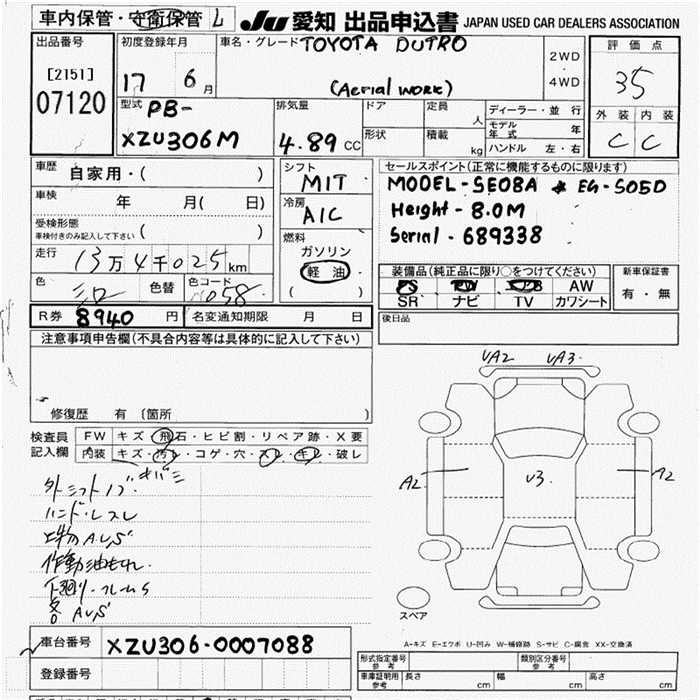 車内保管・守衛保管 L
JU 愛知 出品申込書 JAPAN USED CAR DEALERS ASSOCIATION
出品番号
[2151]
07120
初度登録年月
17 6月
車名・グレード TOYOTA DUTRO
(Aerial work)
2WD
・
4WD
評価点
35
外装 内装
C C
型式 PB-
XZU306M
排気量
4.89 CC
ドア
定員
人
形状
積載
kg
ディーラー・並行
モデル年式 年
ハンドル 左・右
車歴 自家用・( )
車検 年 月( 日)
受検形態
車検付きのみ記入して下さい ( )
走行 13万4千025km
色
色替
色コード
058
シフト
MIT
冷房
A/C
燃料
ガソリン
軽油
( )
セールスポイント(正常に機能するものに限ります)
MODEL-SE08A * EG-S05D
Height - 8.0M
Serial - 689338
装備品(純正品に限り○をつけてください)
PS PW AW
SR ナビ TV カワシート
新車保証書
有・無
R券 8940 円
名変通知期限 月 日
後日品
注意事項申告欄(不具合内容等は具体的に記入して下さい)
修復歴 有 〔箇所 〕
検査員記入欄
FW キズ・飛石・ヒビ割・リペア跡・X要
内装 キズ・汚レ・コゲ・穴・スレ・キレ・破レ
外シフトノブ
ハンドルスレ
上物AUS
作動油もれ
下廻り・フレームS
各AUS
UA2 UA3
A2 U3 A2
スペア
A-キズ E-エクボ U-凹み W-補修跡 S-サビ C-腐食 XX-交換済
車台番号 XZU306-0007088
登録番号
形式指定番号 参考
類別区分番号 参考
車庫証明用 参考 長さ cm 幅 cm 高さ cm